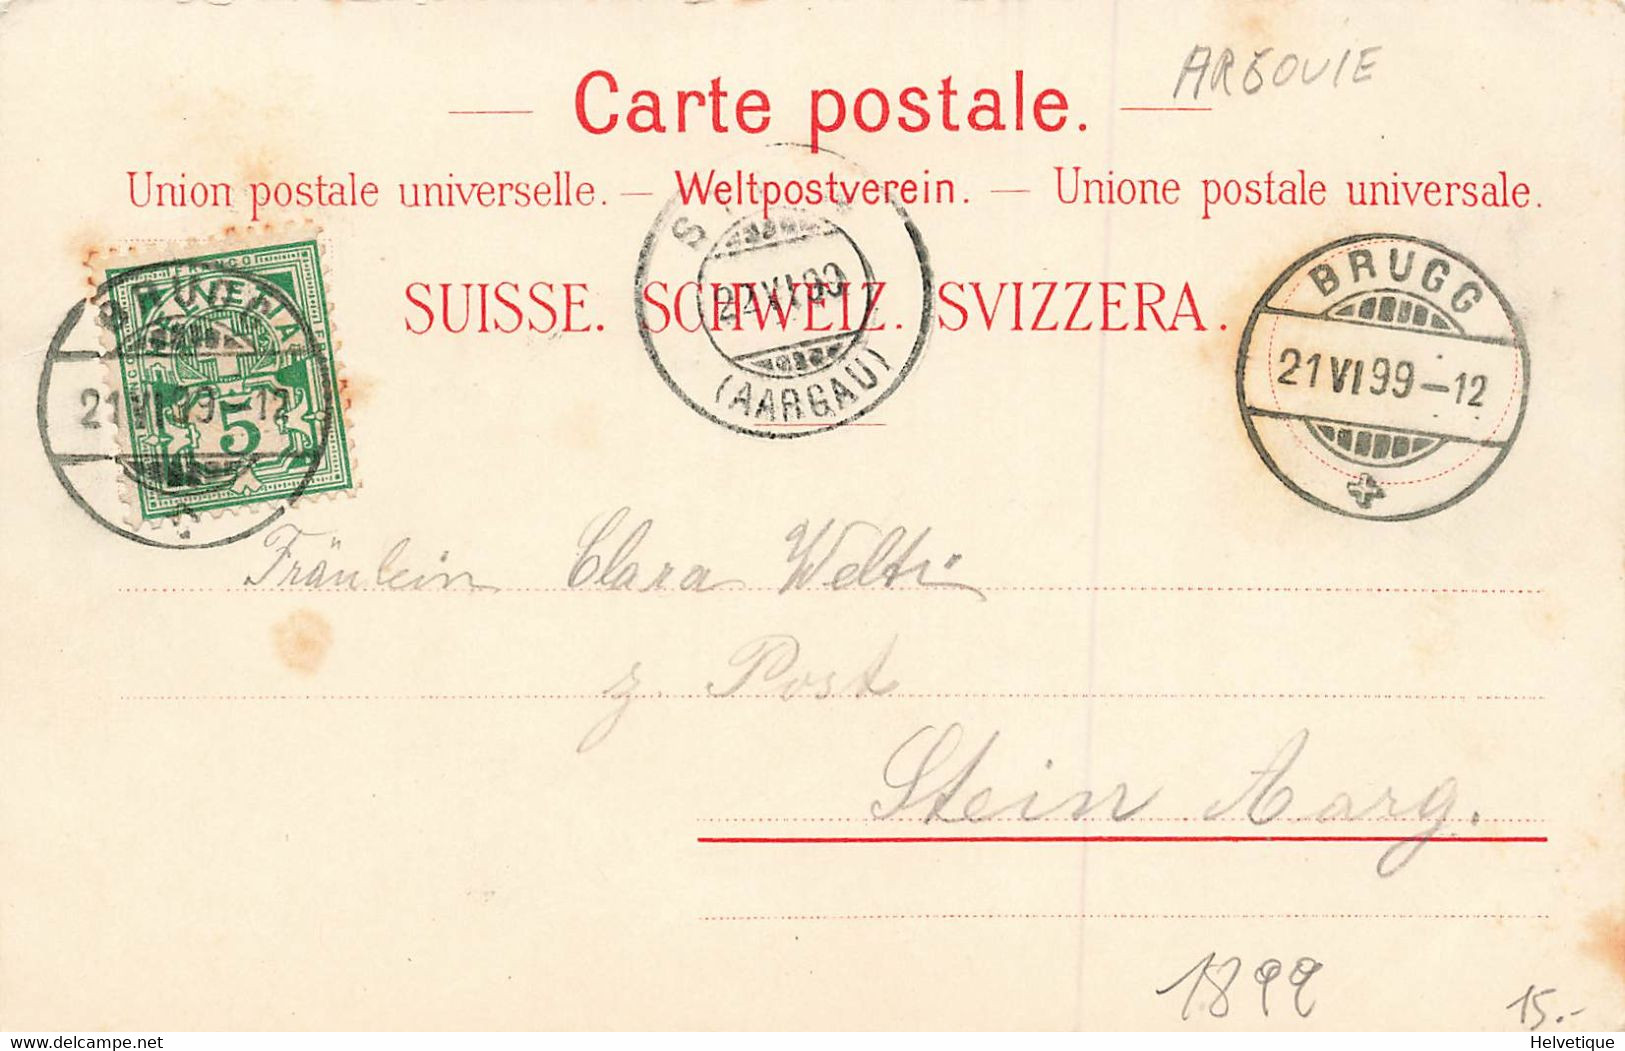 ARGOVIE
Carte postale.
Union postale universelle. — Weltpostverein. — Unione postale universale.
SUISSE. SCHWEIZ. SVIZZERA.
FRANCO
HELVETIA
5
BRUGG
21 VI 99-12
22 VI 99
(AARGAU)
BRUGG
21 VI 99-12
Fräulein Clara Welti
z. Post
Stein Aarg.
1899
15.-
delcampe.net
Helvetique